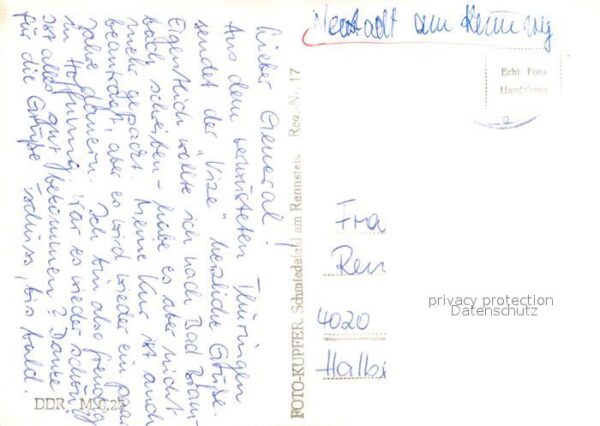 Neustadt am Rennweg
Echt Foto
Handabzug
Lieber General!
Aus dem verwüsteten Thüringen
sendet der "Vize" herzliche Grüße.
Eigentlich wollte ich nach Bad Bram-
bach schreiben - habe es aber nicht
mehr gepackt. Meine Kur ist auch
beantragt, aber es wird wieder ein paar
Jahre dauern. Ich bin also freudig
in Hoffnung. War es wieder schön,
ist alles gut bekommen? Danke
für die Grüße tschüss, bis bald.
DDR M.C.27
FOTO-KUPFER, Schmiedefeld am Rennsteig Reg.-Nr. 17
Fra
Ren
4020
Halbe
privacy protection
Datenschutz